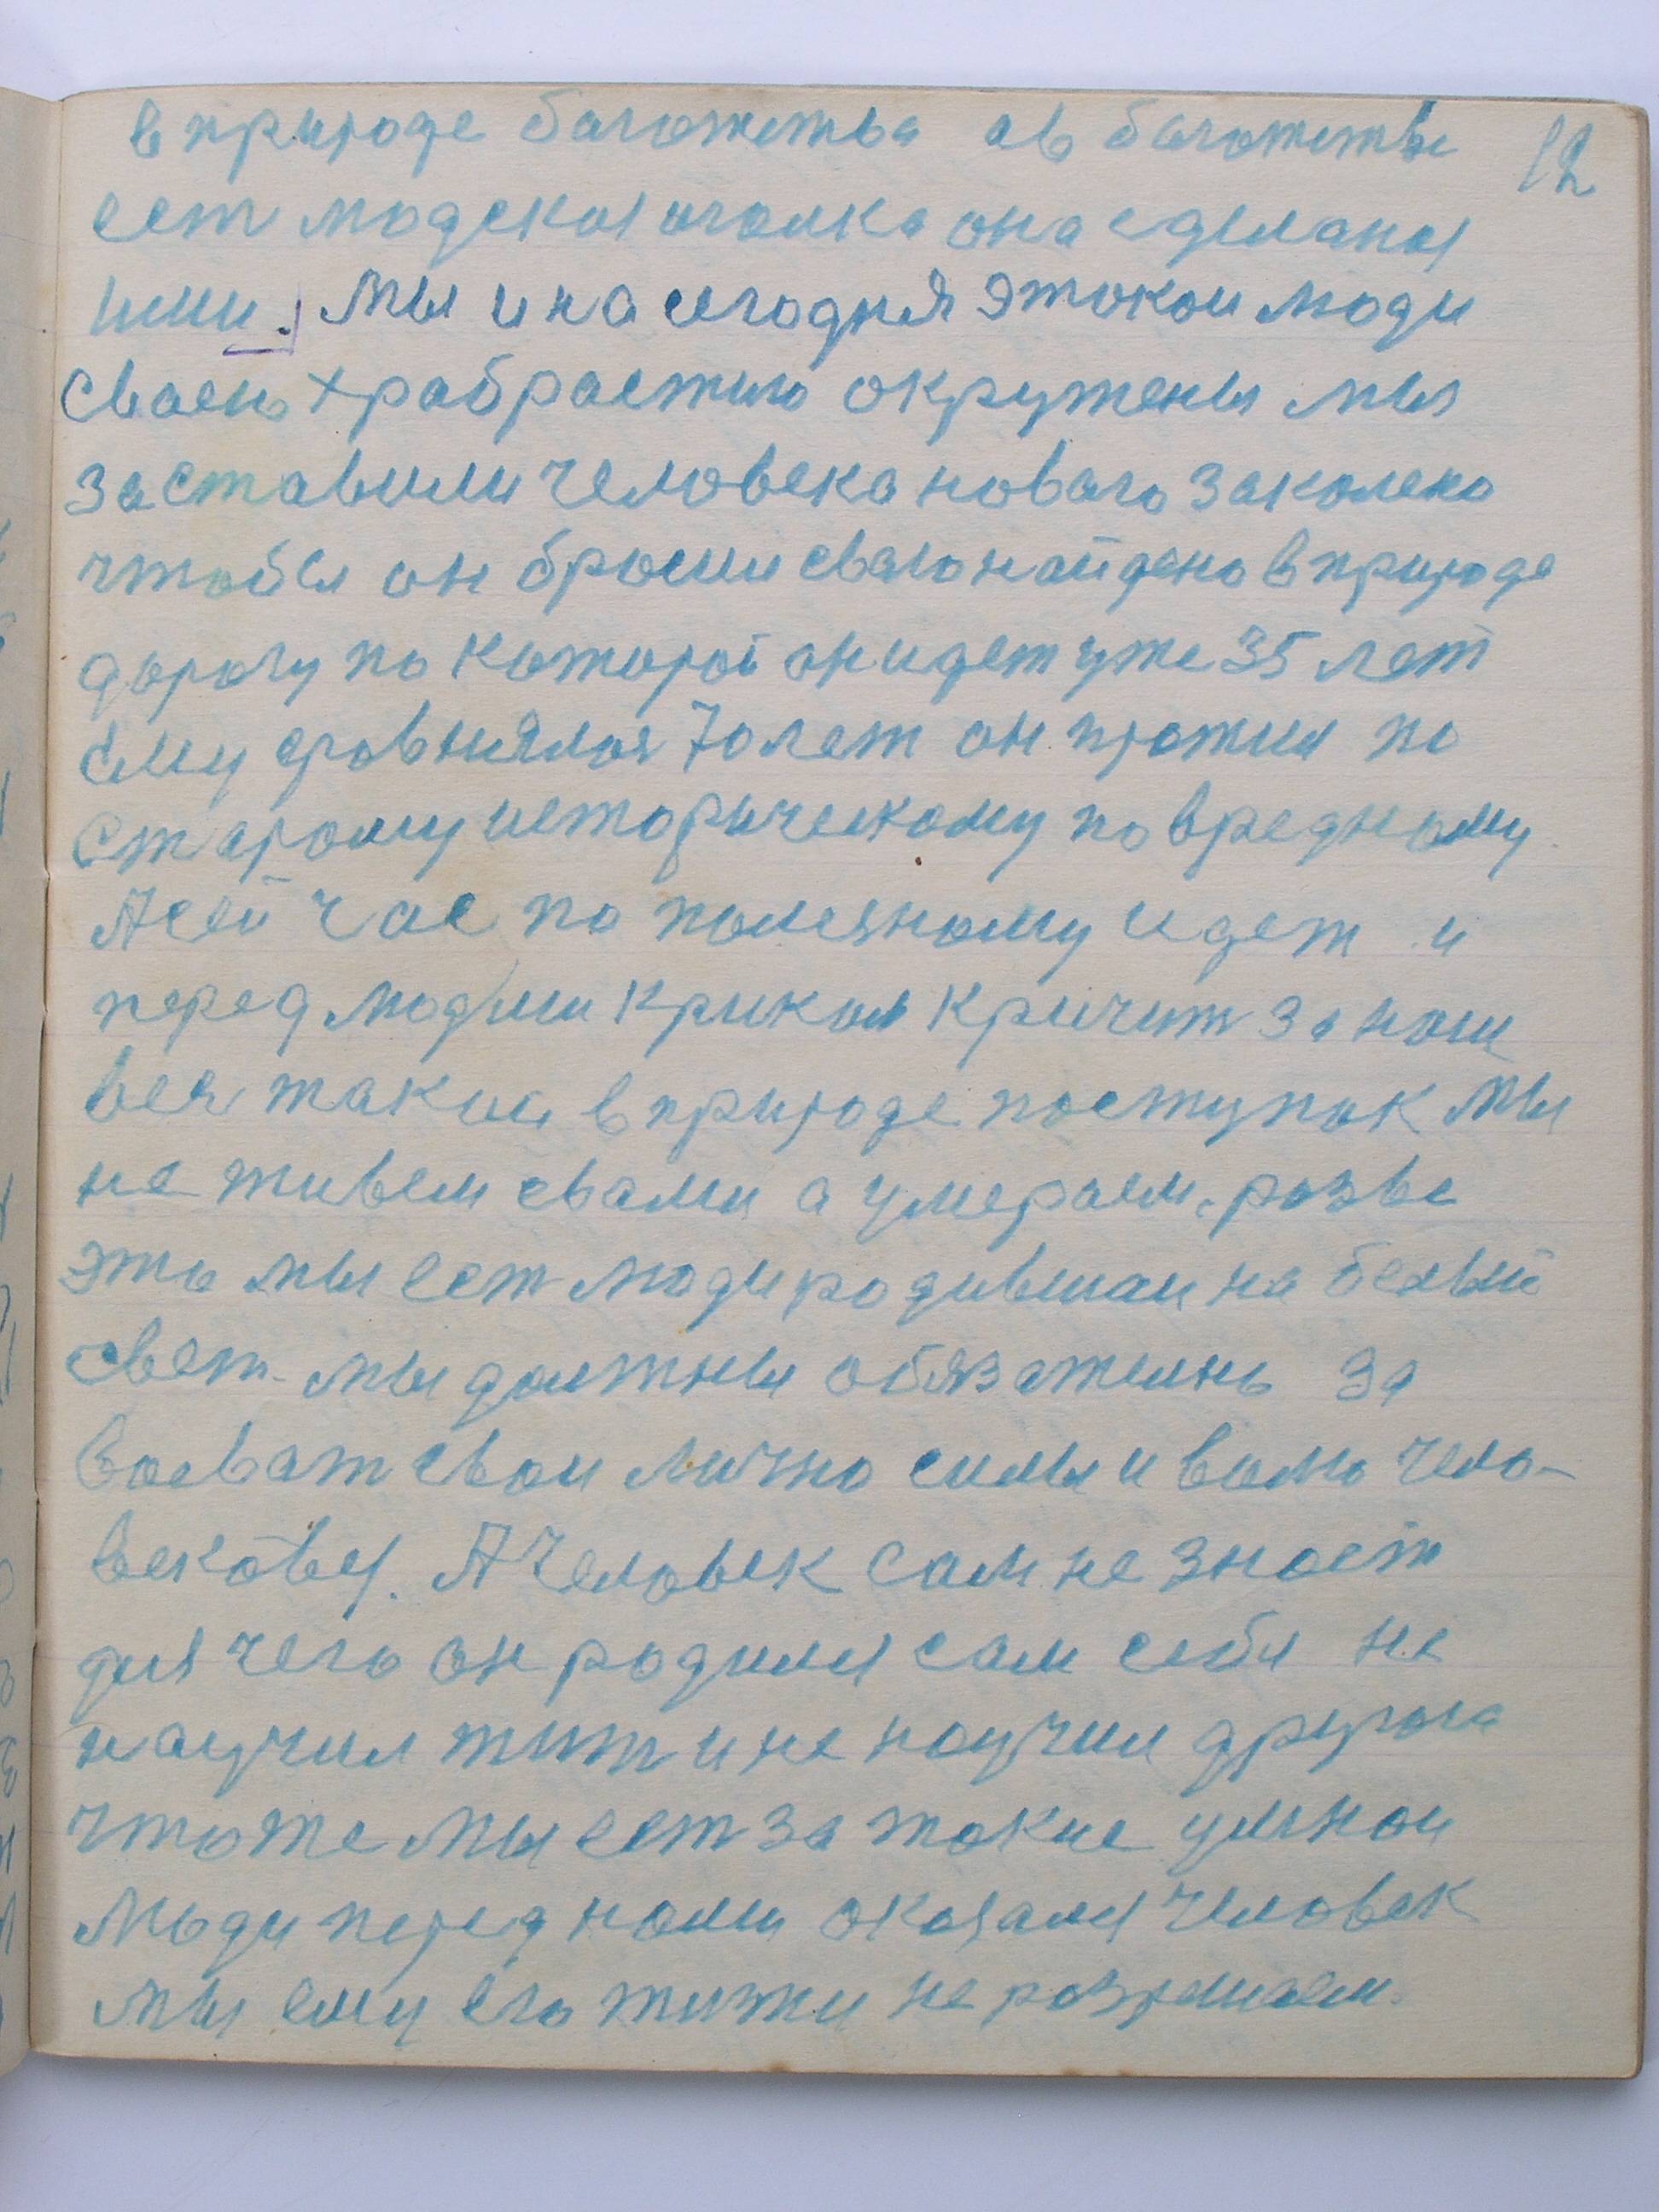 в природе багожства ав багожстве 12
ест людская иголка она сделаная
ими. мы и на сегодня этокои люди
сваею храбрастию окружены мы
заставили человека новаго закалено
чтобы он бросил сваю найдено в природе
дорогу по которой он идет уже 35 лет
ему сровнялоя 70 лет он прожил по
старому историческому по вредному
А сей час по полезному идет и
перед людми криком кричит за наш
вея такой в природе поступок мы
не живем свами а умераем. розве
это мы ест люди родившаи на белый
свет. мы должны обязателно за
воеват свои лично силы и волю чело-
вековы. А человек сам не знает
для чего он родился сам себя не
научил жит и не научил другога
что же мы ест за такие умнои
люди перед нами оказался человек
мы ему его жизни не розрешаем.